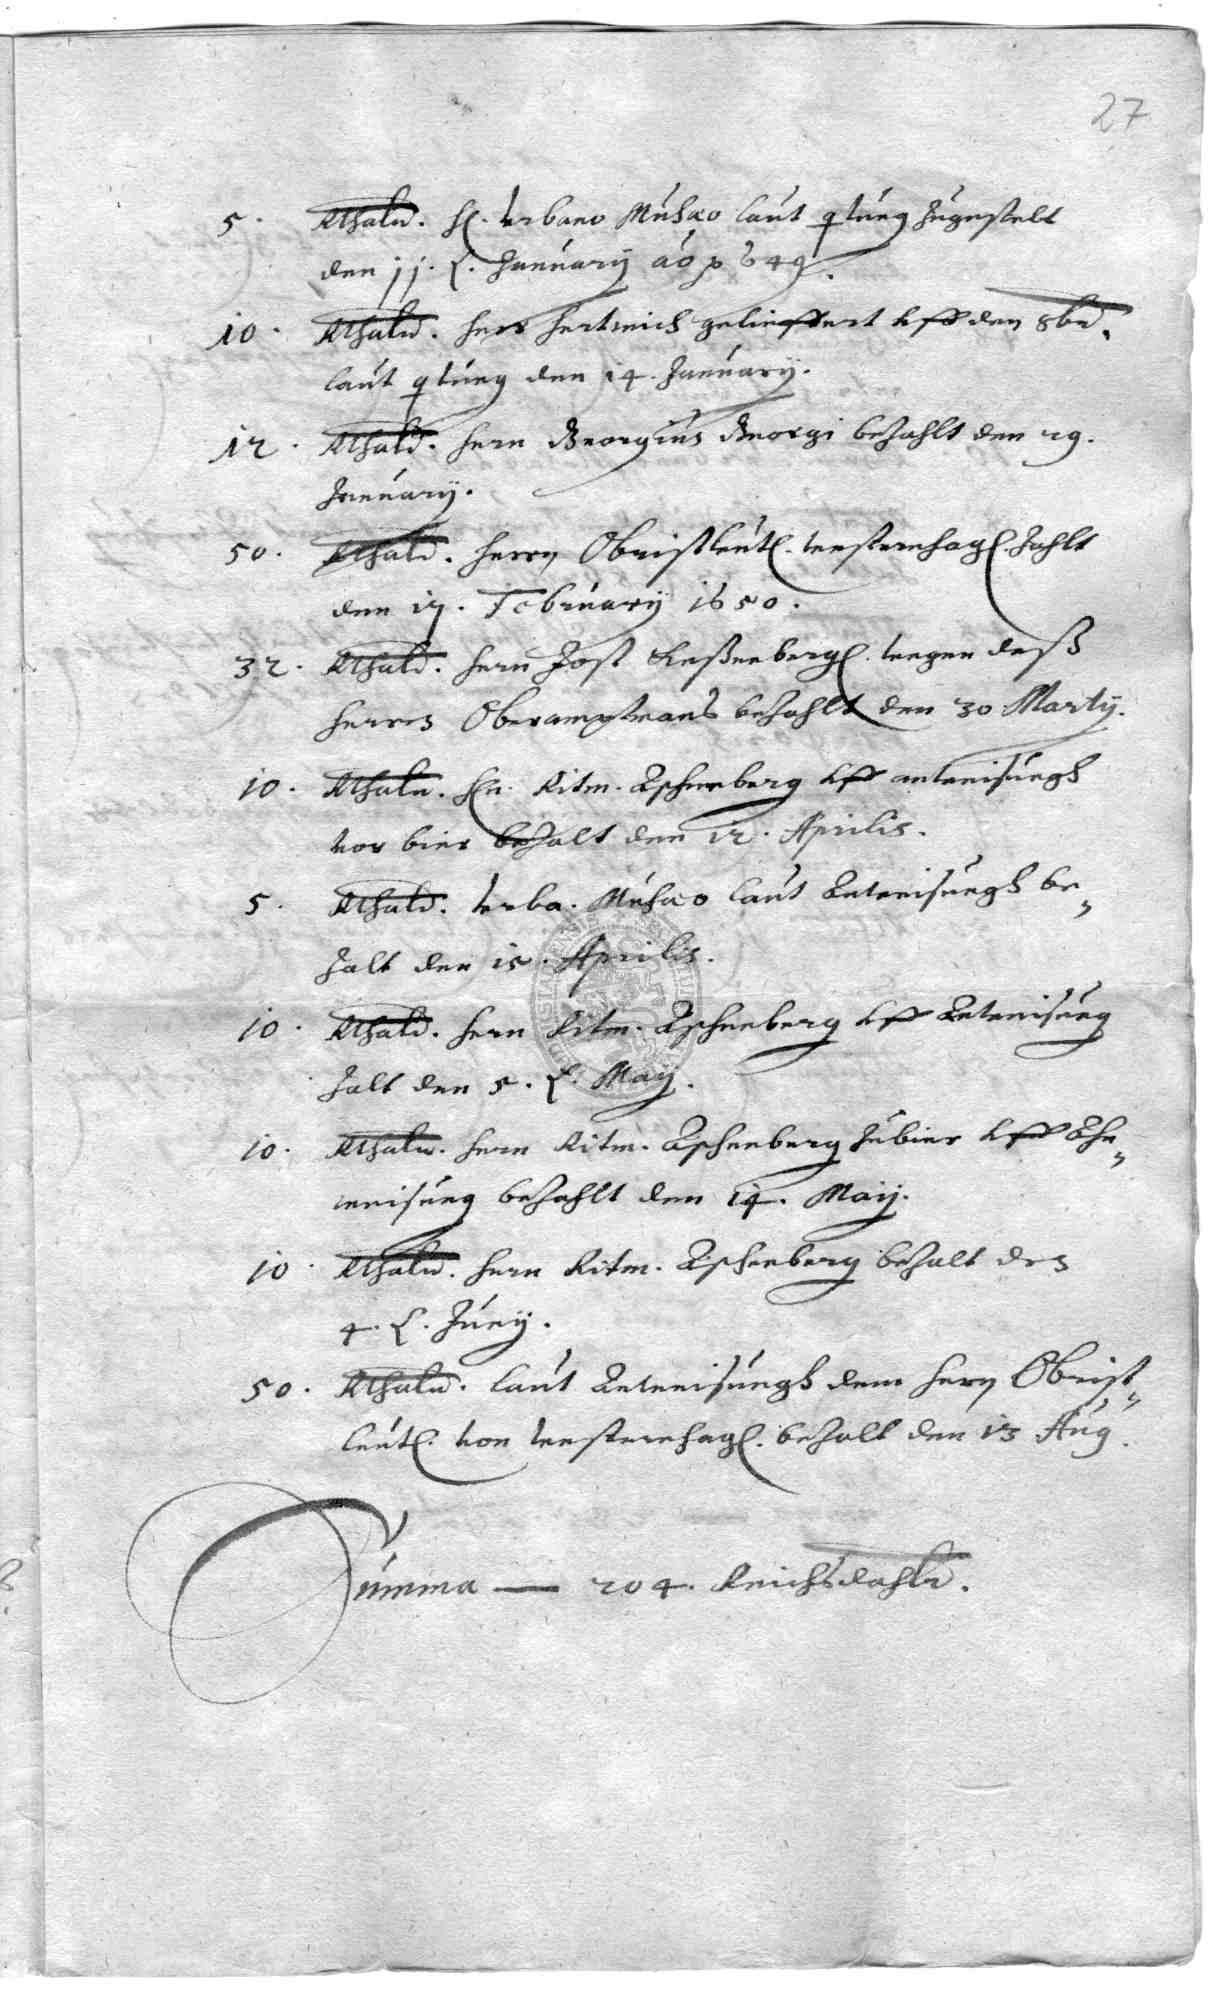 27
5. Rthaler. H. Urbano Musæo laut qtung zugestelt
den 11. January ao 1649.
10. Rthaler. Herr Hertwich gelieffert uff den 8br.
laut qtung den 14. January.
12. Rthald. Hern Georgius Georgi bezahlt den 29.
January.
50. Rthald. Herrn Obristleut. Westernhag. Zahlt
den 17. February 1650.
32. Rthald. Hern Jost wegen deß
Herren Oberamptmans bezahlt den 30 Marty.
10. Rthaler. Hn. Ritm. Aschenberg uff anweisungh
vor bier bezalt den 12. Aprilis.
5. Rthald. Urba. Musæo laut Anweisungh be„
zalt den 15. Aprilis.
10. Rthald. Hern Ritm. Aschenberg uff Anweisung
zalt den 5. May.
10. Rthaler. Hern Ritm. Aschenberg zu bier uff Ahn„
weisung bezahlt den 14. Maij.
10. Rthaler. Hern Ritm. Aschenberg bezalt den
4. Juny.
50. Rthaler. laut Anweisungh dem Hern Obrist„
leut. von Westernhag. bezalt den 13 Aug.
Summa — 204. Reichsdahler.